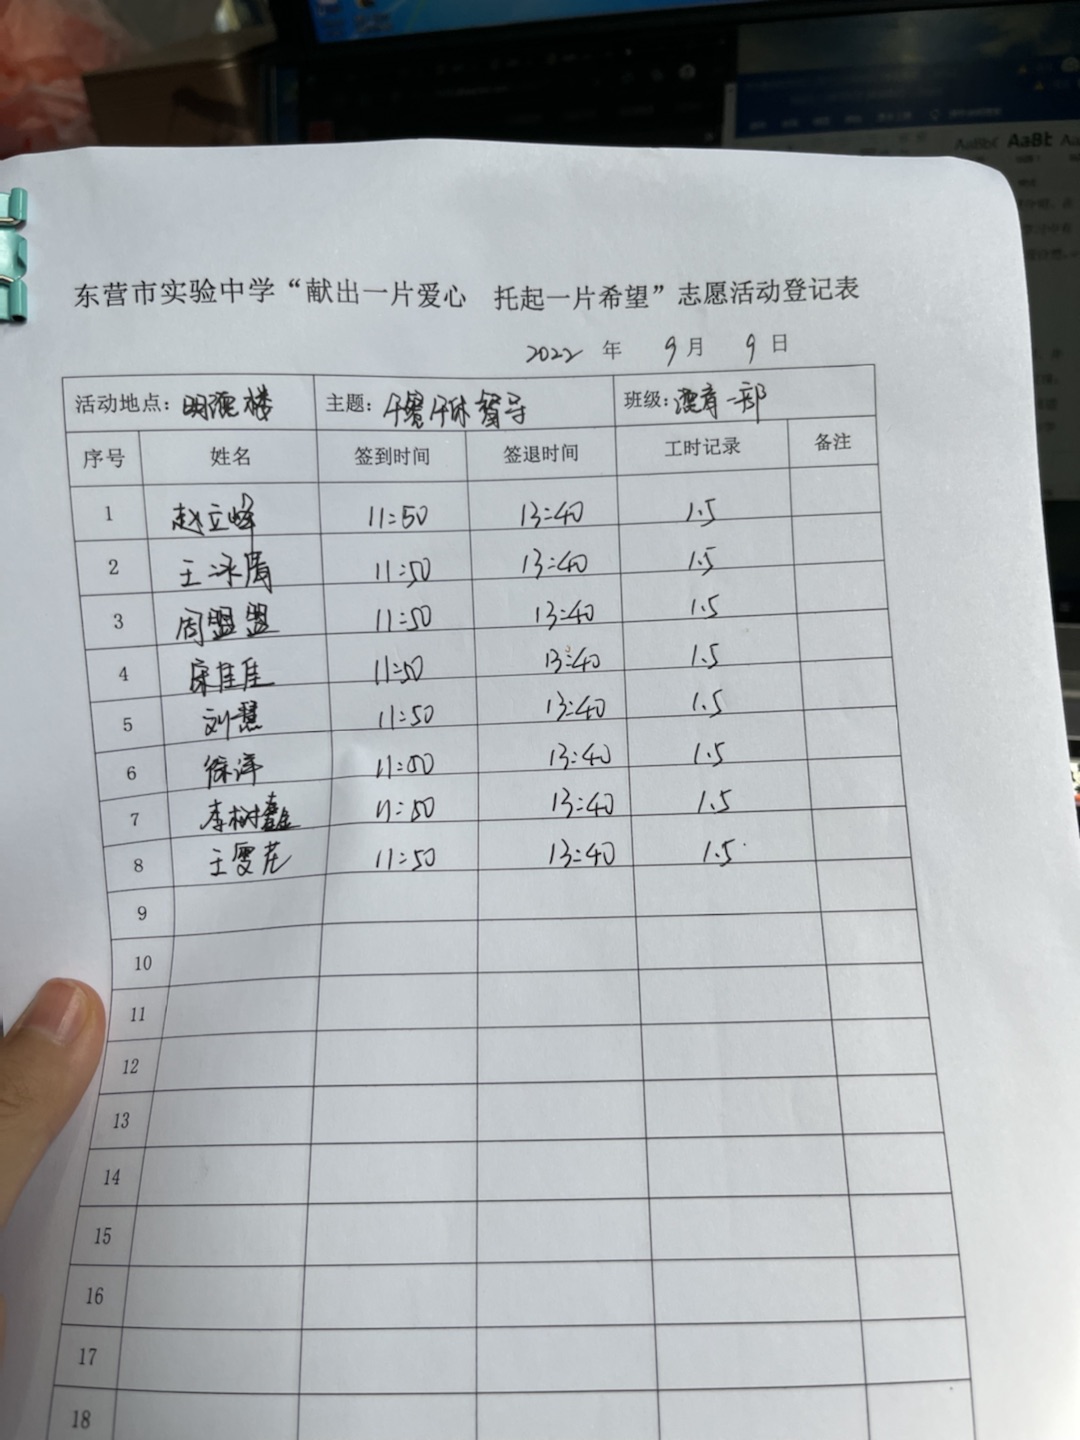 东营市实验中学“献出一片爱心 托起一片希望”志愿活动登记表
2022 年 9 月 9 日
活动地点：明德楼 主题：午餐午休督导 班级：德育一部
序号 姓名 签到时间 签退时间 工时记录 备注
1 赵立峰 11:50 13:40 1.5
2 王冰 11:50 13:40 1.5
3 周盟盟 11:50 13:40 1.5
4 宋佳佳 11:50 13:40 1.5
5 刘慧 11:50 13:40 1.5
6 徐洋 11:50 13:40 1.5
7 李树鑫 11:50 13:40 1.5
8 王雯 11:50 13:40 1.5
9
10
11
12
13
14
15
16
17
18
AaBbC AaBb Aa